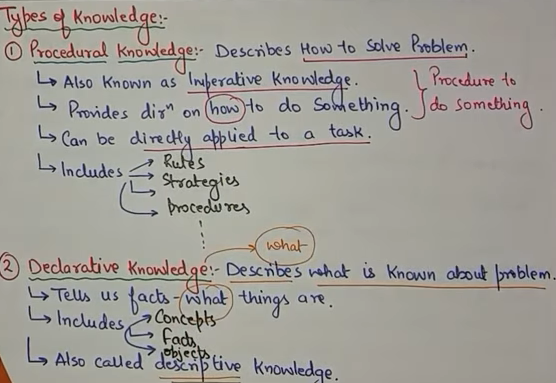 Types of Knowledge:-
① Procedural Knowledge:- Describes How to Solve Problem.
↳ Also Known as Imperative Knowledge.
↳ Provides dirⁿ on how to do Something.
} Procedure to
do something.
↳ Can be directly applied to a task.
↳ Includes → Rules
→ Strategies
→ Procedures
what
② Declarative Knowledge:- Describes what is Known about problem.
↳ Tells us facts - what things are.
↳ Includes → Concepts
→ Facts
→ objects
↳ Also called descriptive Knowledge.